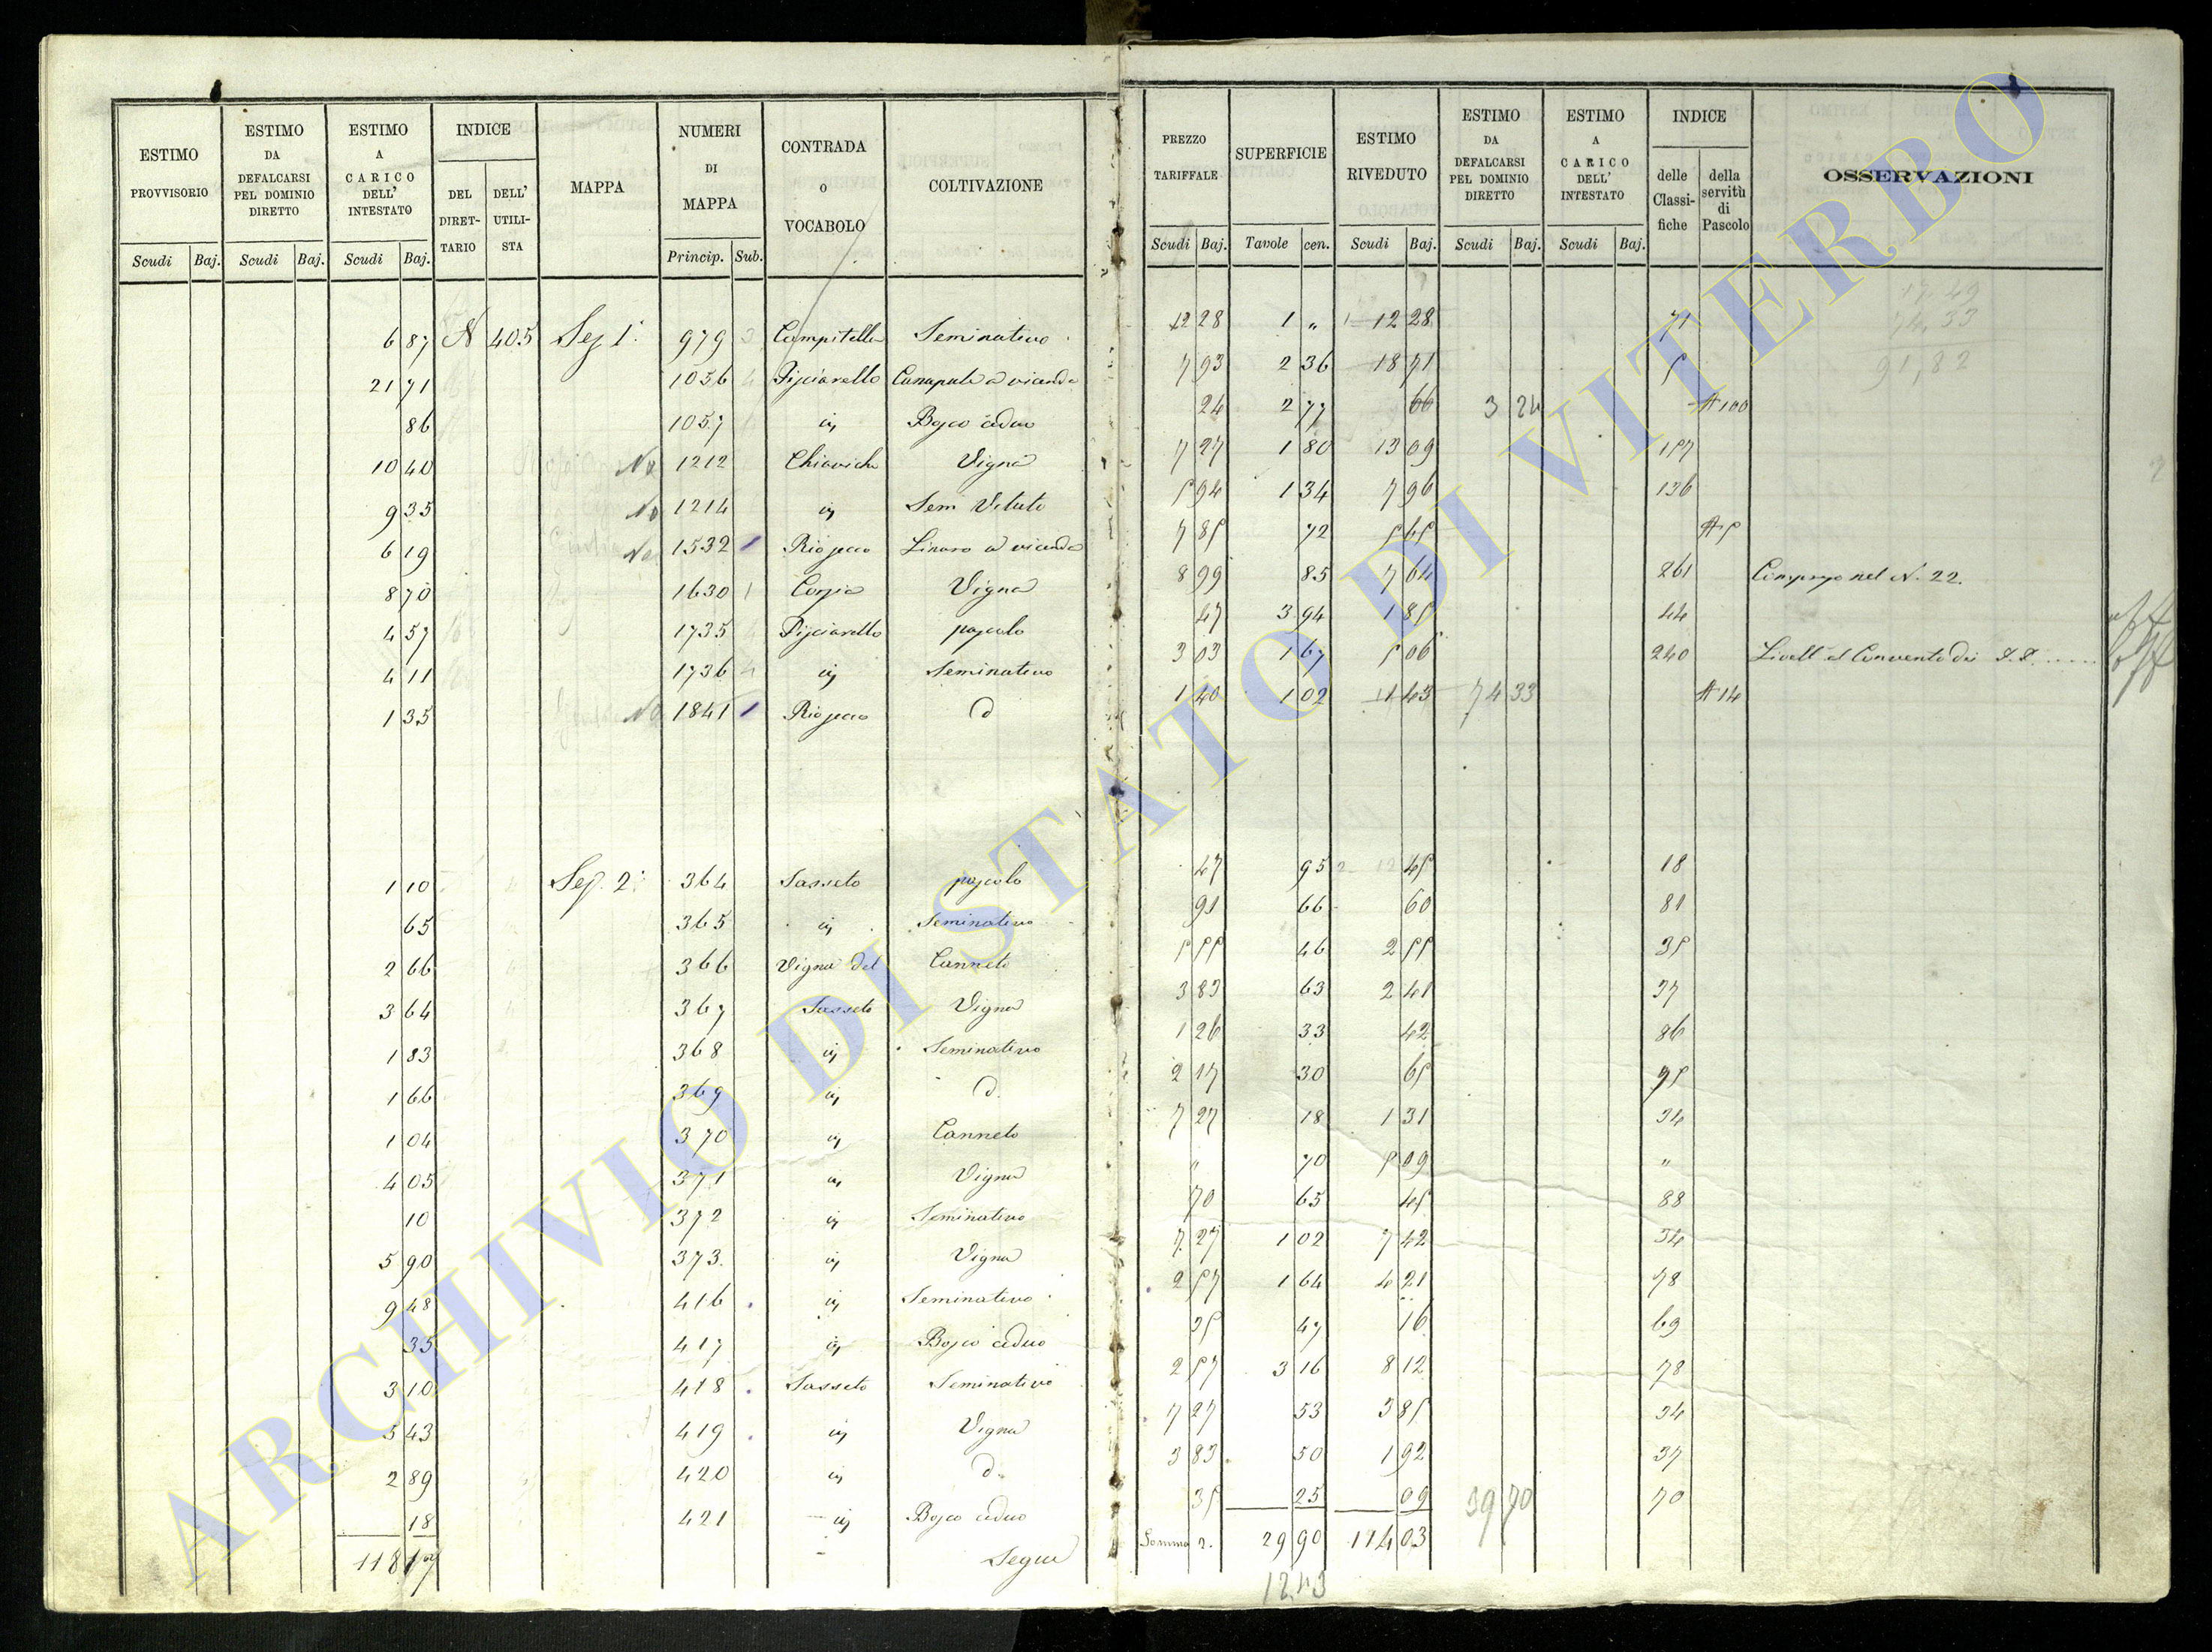 ESTIMO PROVVISORIO | ESTIMO DA DEFALCARSI PEL DOMINIO DIRETTO | ESTIMO A CARICO DELL' INTESTATO | INDICE | MAPPA | NUMERI DI MAPPA | CONTRADA O VOCABOLO | COLTIVAZIONE
DEL DIRET-TARIO | DELL' UTILI-STA
Scudi | Baj. | Scudi | Baj. | Scudi | Baj. | Princip. | Sub.
6 87 N 405 Sez 1ª 979 3 Campitella Seminativo
21 71 1056 4 Pisciarello Canapule a vicenda
86 1057 id Bosco ceduo
10 40 No 1212 Chiaviche Vigna
9 35 No 1214 id Sem Vitato
6 19 No 1532 1 Rio secco Linaro a vicenda
8 70 1630 1 Vigna
4 57 1735 Pisciarello pascolo
4 11 1736 4 id Seminativo
1 35 No 1841 1 Rio secco d
1 10 Sez. 2ª 364 Sasseto pascolo
65 365 id Seminativo
2 66 366 Vigna del Canneto
3 64 367 Sasseto Vigna
1 83 368 id Seminativo
1 66 369 id d.
1 04 370 id Canneto
4 05 371 id Vigna
10 372 id Seminativo
5 90 373 id Vigna
9 48 416 id Seminativo
35 417 id Bosco ceduo
3 10 418 Sasseto Seminativo
5 43 419 id Vigna
2 89 420 id d.
18 421 id Bosco ceduo
118 17 Segue
PREZZO TARIFFALE | SUPERFICIE | ESTIMO RIVEDUTO | ESTIMO DA DEFALCARSI PEL DOMINIO DIRETTO | ESTIMO A CARICO DELL' INTESTATO | INDICE | OSSERVAZIONI
delle Classi-fiche | della servitù di Pascolo
Scudi | Baj. | Tavole | cen. | Scudi | Baj. | Scudi | Baj. | Scudi | Baj.
17,49
74,33
91,82
12 28 1 " 12 28 71
7 93 2 36 18 71 5
24 2 77 66 3 24 A 100
7 27 1 80 13 09 157
5 94 1 34 7 96 136
7 85 72 5 65 A 5
8 99 85 7 64 261 Compreso nel N. 22.
47 3 94 1 85 44
3 03 1 67 5 06 240 Livell al Convento dei P.P. .....
1 40 1 02 1 43 74 33 A 14
47 95 45 18
91 66 60 81
5 55 46 2 55 35
3 83 63 2 41 37
1 26 33 42 86
2 17 30 65 95
7 27 18 1 31 34
" 70 5 09 "
70 65 45 88
7 27 1 02 7 42 34
2 57 1 64 4 21 78
35 47 16 69
2 57 3 16 8 12 78
7 27 53 3 85 34
3 83 50 1 92 37
35 25 09 39 70 70
Somma 2. 29 90 114 03
12 43
ARCHIVIO DI STATO DI VITERBO